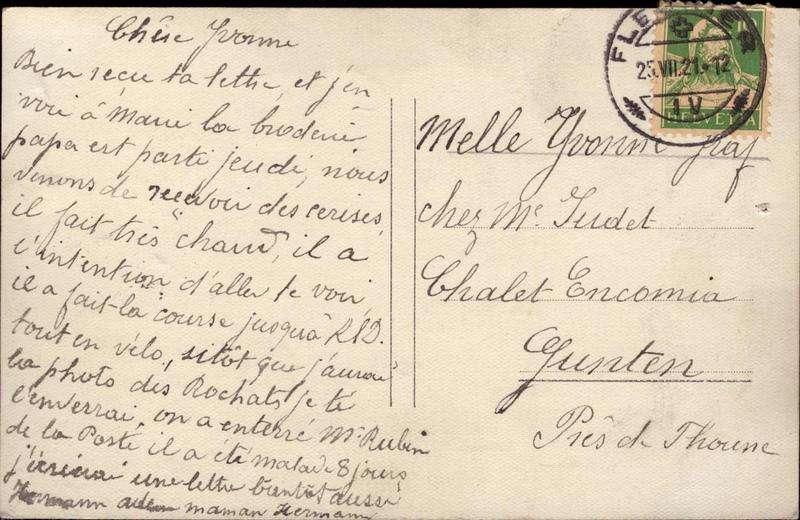 Chère Yvonne
Bien reçu ta lettre, et j'en
voie à Marie la broderie
papa est parti jeudi, nous
venons de recevoir des cerises,
il fait très "chaud", il a
l'intention d'aller te voir,
il a fait la course jusqu'à
tout en vélo, sitôt que j'aurai
la photo des Rochats je te
l'enverrai, on a enterré Mr Rubin
de la Poste il a été malade 8 jours
j'écrirai une lettre bientôt aussi
Hermann maman Hermann
FLEURIER
25.VII.21.-12
IV
HELVETIA
Melle Yvonne Graf
chez Me Judet
Chalet Encomia
Gunten
Près de Thoune